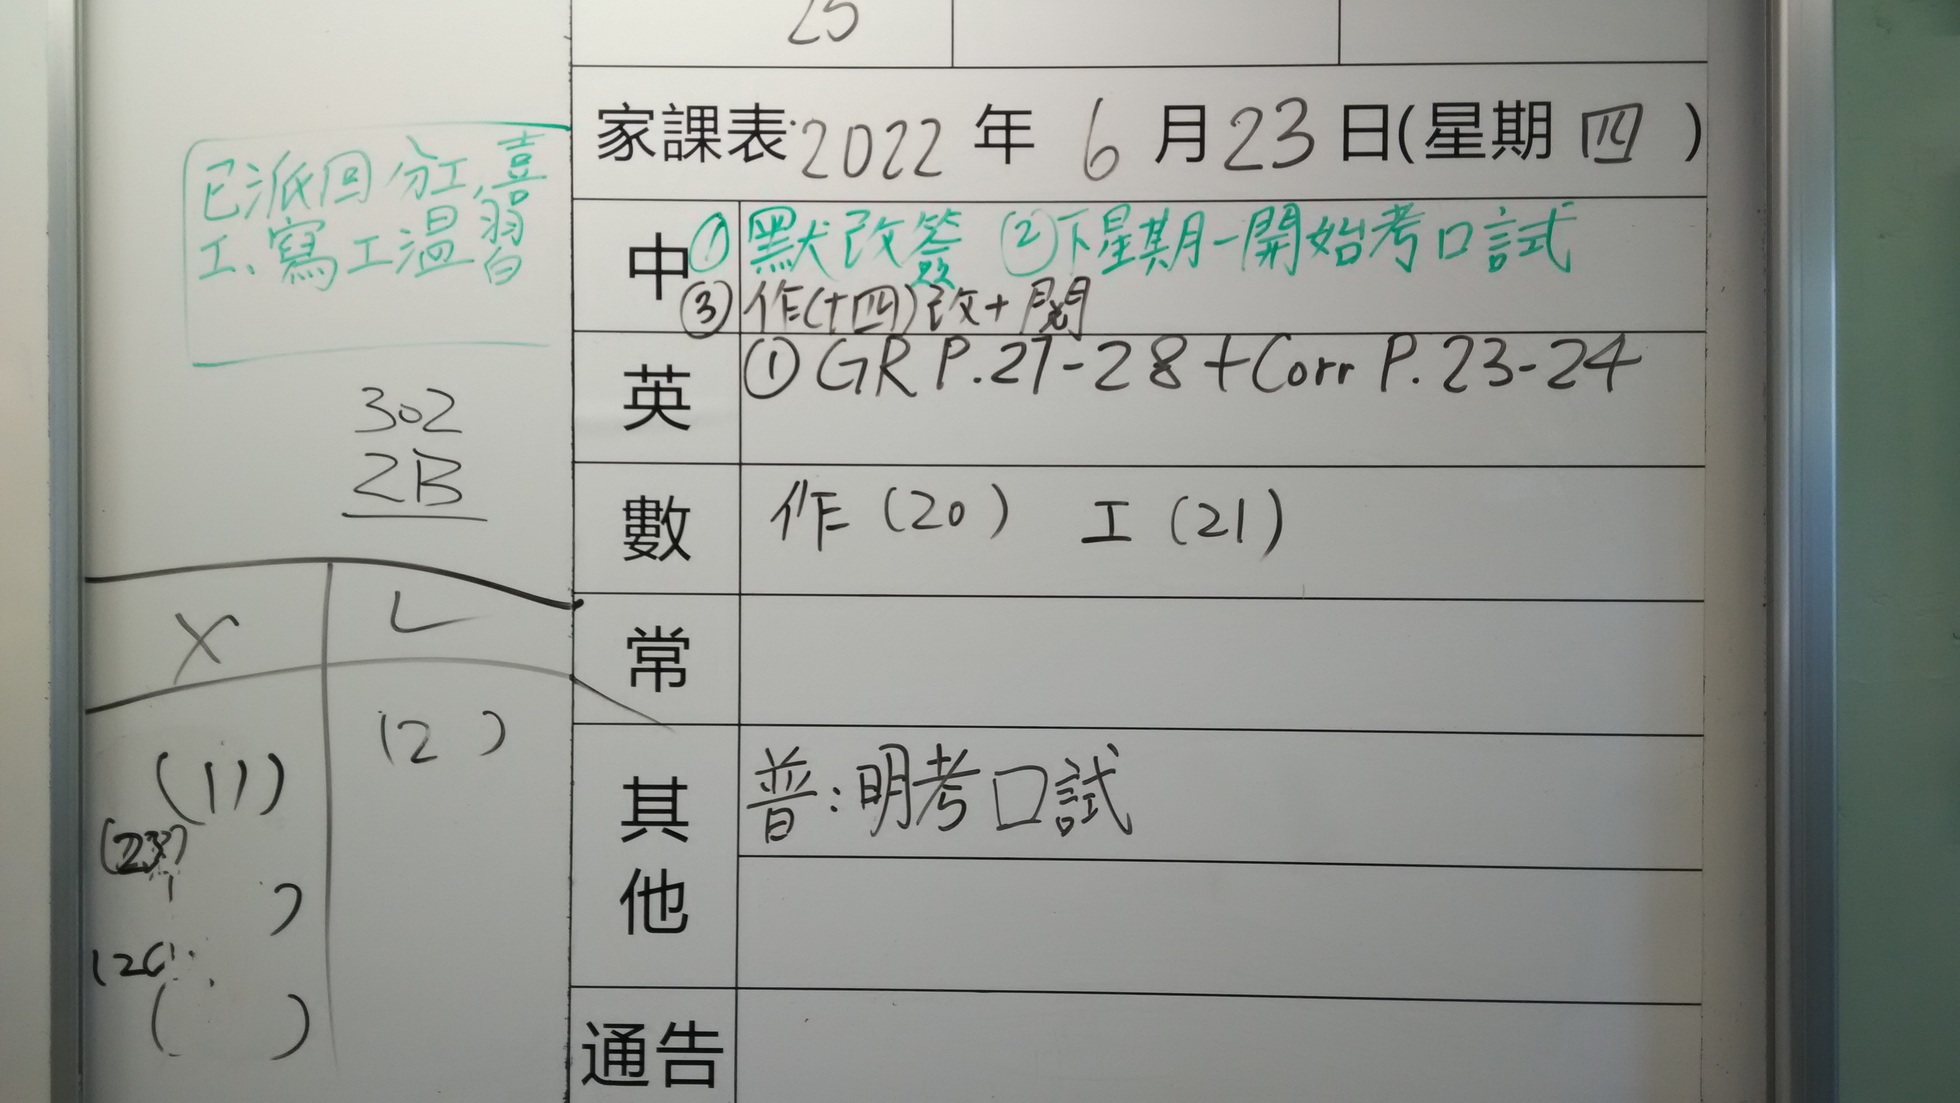 25
家課表 2022 年 6 月 23 日(星期 四 )
已派回 分工、喜
工、寫工溫習
中 ① 默改簽 ② 下星期一開始考口試
③ 作(十四)改+閱
英 ① GR P.27-28 + Corr P.23-24
302
2B
數 作 (20) 工 (21)
常
X L
(2 )
(11)
其他 普:明考口試
通告